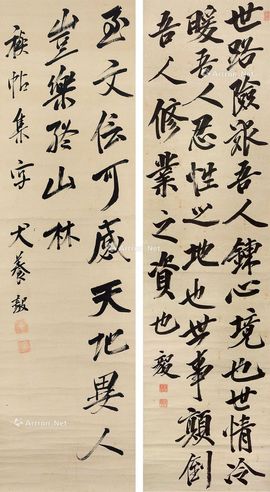 世路險巇吾人鍊心境也世情冷
暖吾人忍性之地也世事顛倒
吾人修業之資也 毅
至文信可感天地異人
豈樂殊山林
禊帖集字 犬養毅
Artron.Net